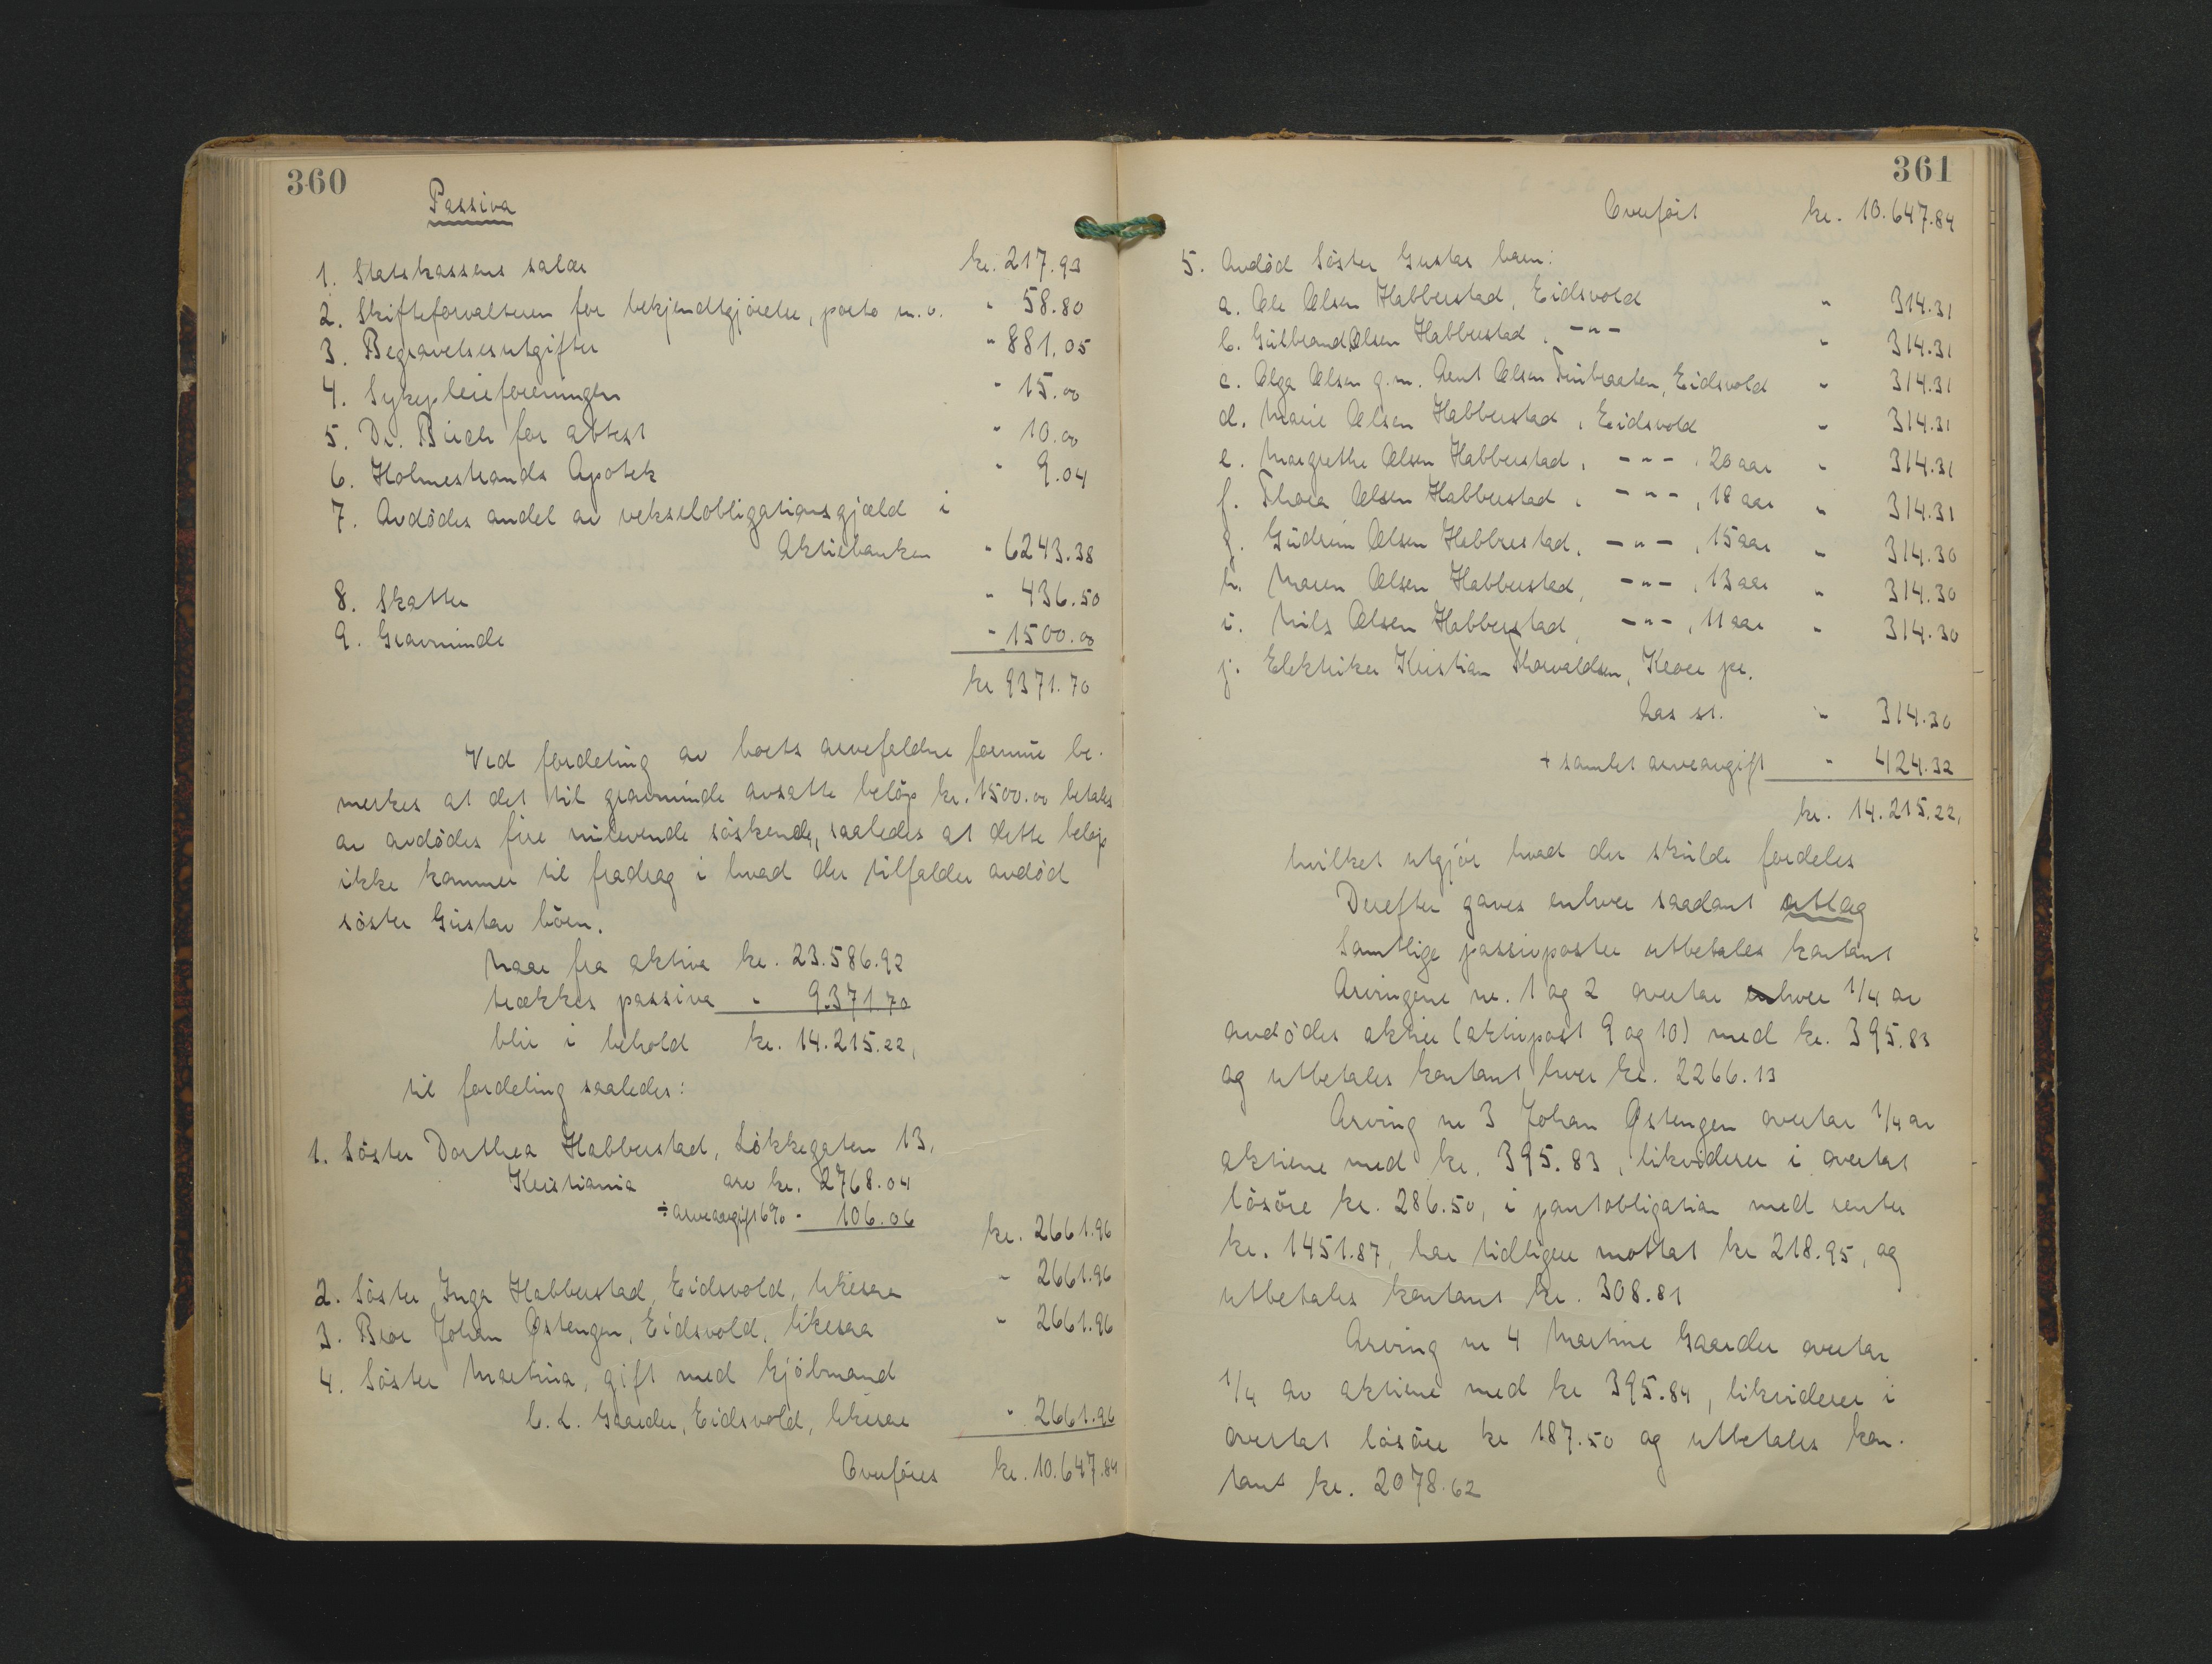 360
Passiva
1. Statskassens salær kr. 217.93
2. Skifteforvalteren for bekjendtgjörelse, porto m. v. " 58.80
3. Begravelsesutgifter " 881.05
4. Sykepleieforeningen " 15.00
5. Dr. Birch for attest " 10.00
6. Holmestrands Apotek " 9.04
7. Avdödes andel av vekselobligationsgjæld i
Aktiebanken " 6243.38
8. Skatter " 436.50
9. Gravminde " 1500.00
kr 9371.70
Ved fordeling av boets arvefaldne formue be-
merkes at det til gravminde avsatte belöp kr. 1500.00 betales
av avdödes fire nulevende söskende, saaledes at dette belöp
ikke kommer til fradrag i hvad der tilfalder avdöd
söster Gustas börn.
Naar fra aktiva kr. 23.586.92
trækkes passiva " 9.371 70
blir i behold kr. 14.215.22,
til fordeling saaledes:
1. Söster Dorthea Habberstad, Lökkegaten 13,
Kristiania arv kr. 2768.04
÷ arveavgift 6% " 106.06 kr. 2661.96
2. Söster Inga Habberstad, Eidsvold, likesaa " 2661.96
3. Bror Johan Østengen, Eidsvold, likesaa " 2661.96
4. Söster Martina, gift med kjöbmand
C. L. Gaarder, Eidsvold, likesaa " 2661.96
Overföres kr. 10.647.84
361
Overfört kr. 10.647.84
5. Avdöd söster Gustas barn:
a. Ole Olsen Habberstad, Eidsvold " 314.31
b. Gulbrand Olsen Habberstad, -"- " 314.31
c. Olga Olsen g.m. Arnt Olsen Finbraaten, Eidsvold " 314.31
d. Marie Olsen Habberstad, Eidsvold " 314.31
e. Margrethe Olsen Habberstad, -"-, 20 aar " 314.31
f. Thora Olsen Habberstad, -"-, 18 aar " 314.31
g. Gudrun Olsen Habberstad, -"-, 15 aar " 314.30
h. Maren Olsen Habberstad, -"-, 13 aar " 314.30
i. Nils Olsen Habberstad, -"-, 11 aar " 314.30
j. Elektriker Kristian Thorvaldsen, Kroer pr.
Aas st. " 314.30
+ samlet arveavgift " 424.32
kr. 14.215.22,
hvilket utgjör hvad der skulde fordeles
Derefter gaves enhver saadant utlæg
Samtlige passivposter utbetales kontant
Arvingene nr. 1 og 2 overtar enhver 1/4 av
avdödes aktier (aktivpost 9 og 10) med kr. 395.83
og utbetales kontant hver kr. 2266.13
Arving nr 3 Johan Østengen overtar 1/4 av
aktiene med kr. 395.83, likviderer i overtat
lösöre kr. 286.50, i pantobligation med renter
kr. 1451.87, har tidligere mottat kr 218.95, og
utbetales kontant kr. 308.81
Arving nr 4 Martine Gaarder overtar
1/4 av aktiene med kr 395.84, likviderer i
overtat lösöre kr 187.50 og utbetales kon-
tant kr. 2078.62